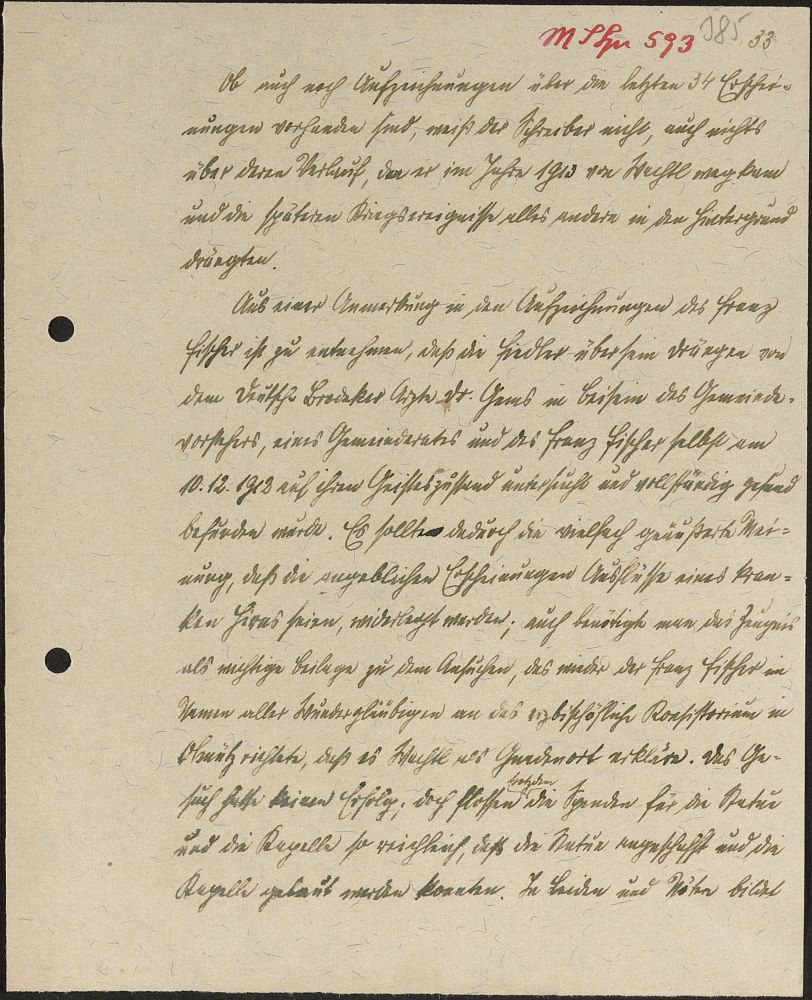 M Shu 593 385 33
Ob auch noch Aufzeichnungen über die letzten 34 Erschei-
nungen vorhanden sind, weiß der Schreiber nicht, auch nichts
über deren Verlauf, da er im Jahre 1913 von Wachtl weg kam
und die späteren Kriegsereignisse alles andere in den Hintergrund
drängten.
Aus einer Anmerkung in den Aufzeichnungen des Franz
Fischer ist zu entnehmen, daß die Fiedler über sein Drängen von
dem Deutsch Brodeker Arzte Dr. Gams in Beisein des Gemeinde-
vorstehers, eines Gemeinderates und des Franz Fischer selbst am
10. 12. 1912 auf ihren Geisteszustand untersucht und vollständig gesund
befunden wurde. Es sollte dadurch die vielfach geäußerte Mei-
nung, daß die angeblichen Erscheinungen Ausflüsse eines kran-
ken Hirns seien, widerlegt werden; auch benötigte man das Zeugnis
als wichtige Beilage zu dem Ansuchen, das wieder der Franz Fischer im
Namen aller Wundergläubigen an das erzbischöfliche Konsistorium in
Olmütz richtete, daß es Wachtl als Gnadenort erkläre. Das Ge-
such hatte keinen Erfolg; doch flossen trotzdem die Spenden für die Statue
und die Kapelle so reichlich, daß die Statue angeschafft und die
Kapelle gebaut werden konnten. In Leiden und Nöten bildet